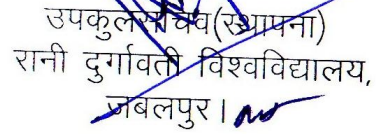 उपकुलसचिव(स्थापना)
रानी दुर्गावती विश्वविद्यालय,
जबलपुर।